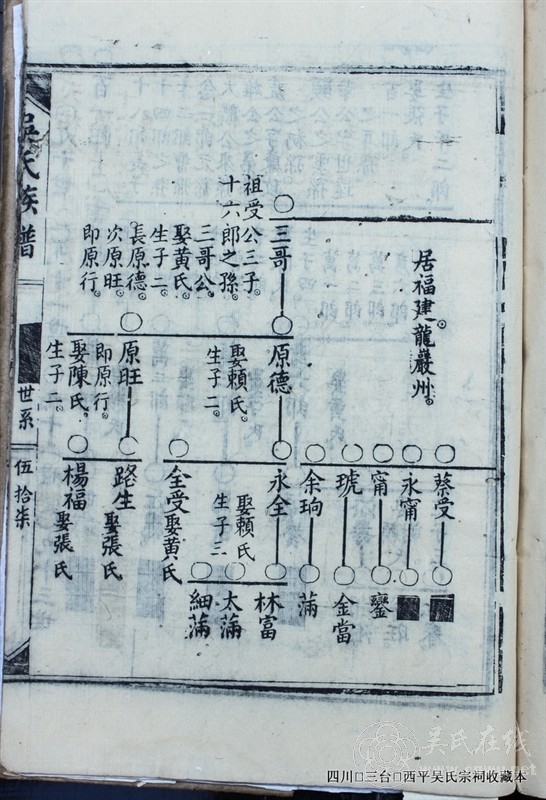 居福建龍巖州。
三哥
祖受公三子
十六郎之孫。
三哥公。
娶黃氏。
生子二。
長原德。
次原旺。
即原行。
原德
娶賴氏。
生子二。
原旺
即原行。
娶陳氏。
生子二。
蔡受
永甯
甯
琥
余珦
永全
娶賴氏
生子三
全受娶黄氏
路生
娶張氏
楊福
娶張氏
鑾
金當
蒲
林富
太蒲
細蒲
吳氏族譜
世系
伍拾柒
吴氏在线
www.cnwu.net
四川□三台□西平吴氏宗祠收藏本